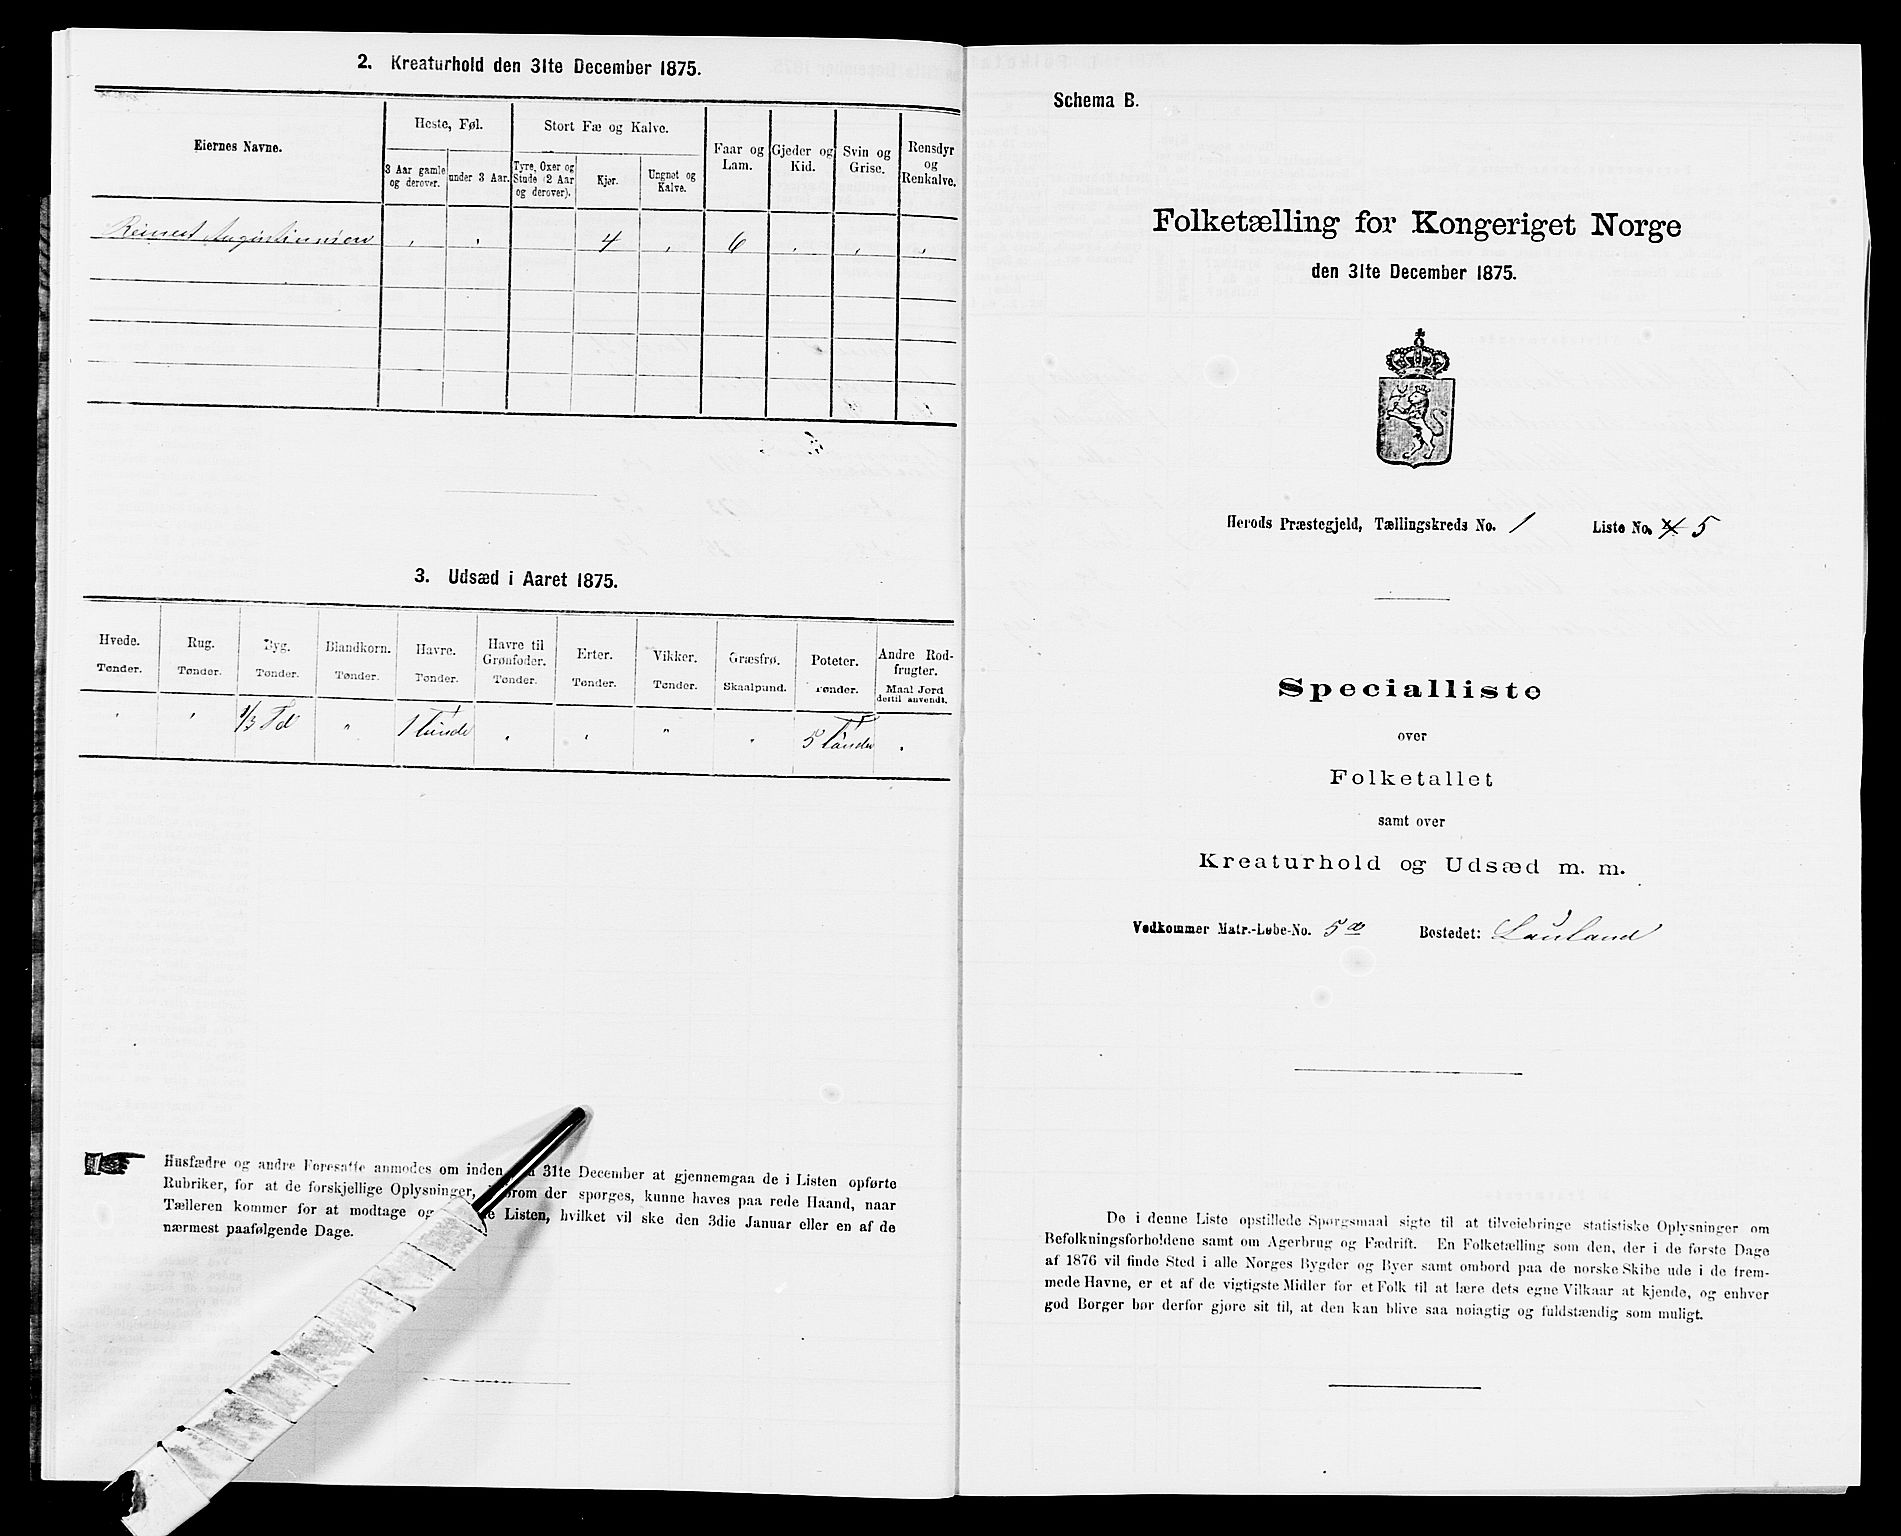 2. Kreaturhold den 31te December 1875.
Eiernes Navne.
Heste, Føl.
Stort Fæ og Kalve.
Faar og Lam.
Gjeder og Kid.
Svin og Grise.
Rensdyr og Renkalve.
3 Aar gamle og derover.
under 3 Aar.
Tyre, Oxer og Stude (2 Aar og derover).
Kjør.
Ungnøt og Kalve.
Augustinusen 4 6
3. Udsæd i Aaret 1875.
Hvede. Rug. Byg. Blandkorn. Havre. Havre til Grønfoder. Erter. Vikker. Græsfrø. Poteter. Andre Rodfrugter.
Tønder. Tønder. Tønder. Tønder. Tønder. Tønder. Tønder. Tønder. Skaalpund. Tønder. Maal Jord dertil anvendt.
" " 1/3 Td " 1 Tünde " " " " 5 Tünder "
Husfædre og andre Foresatte anmodes om inden 31te December at gjennemgaa de i Listen opførte
Rubriker, for at de forskjellige Oplysninger, hvorom der spørges, kunne haves paa rede Haand, naar
Tælleren kommer for at modtage og Listen, hvilket vil ske den 3die Januar eller en af de
nærmest paafølgende Dage.
Schema B.
Folketælling for Kongeriget Norge
den 31te December 1875.
Herøds Præstegjeld, Tællingskreds No. 1 Liste No. 4 5
Specialliste
over
Folketallet
samt over
Kreaturhold og Udsæd m. m.
Vedkommer Matr.-Løbe-No. 5 Bostedet: Lauland
De i denne Liste opstillede Spørgsmaal sigte til at tilveiebringe statistiske Oplysninger om
Befolkningsforholdene samt om Agerbrug og Fædrift. En Folketælling som den, der i de første Dage
af 1876 vil finde Sted i alle Norges Bygder og Byer samt ombord paa de norske Skibe ude i de frem-
mede Havne, er et af de vigtigste Midler for et Folk til at lære dets egne Vilkaar at kjende, og enhver
god Borger bør derfor gjøre sit til, at den kan blive saa nøiagtig og fuldstændig som muligt.